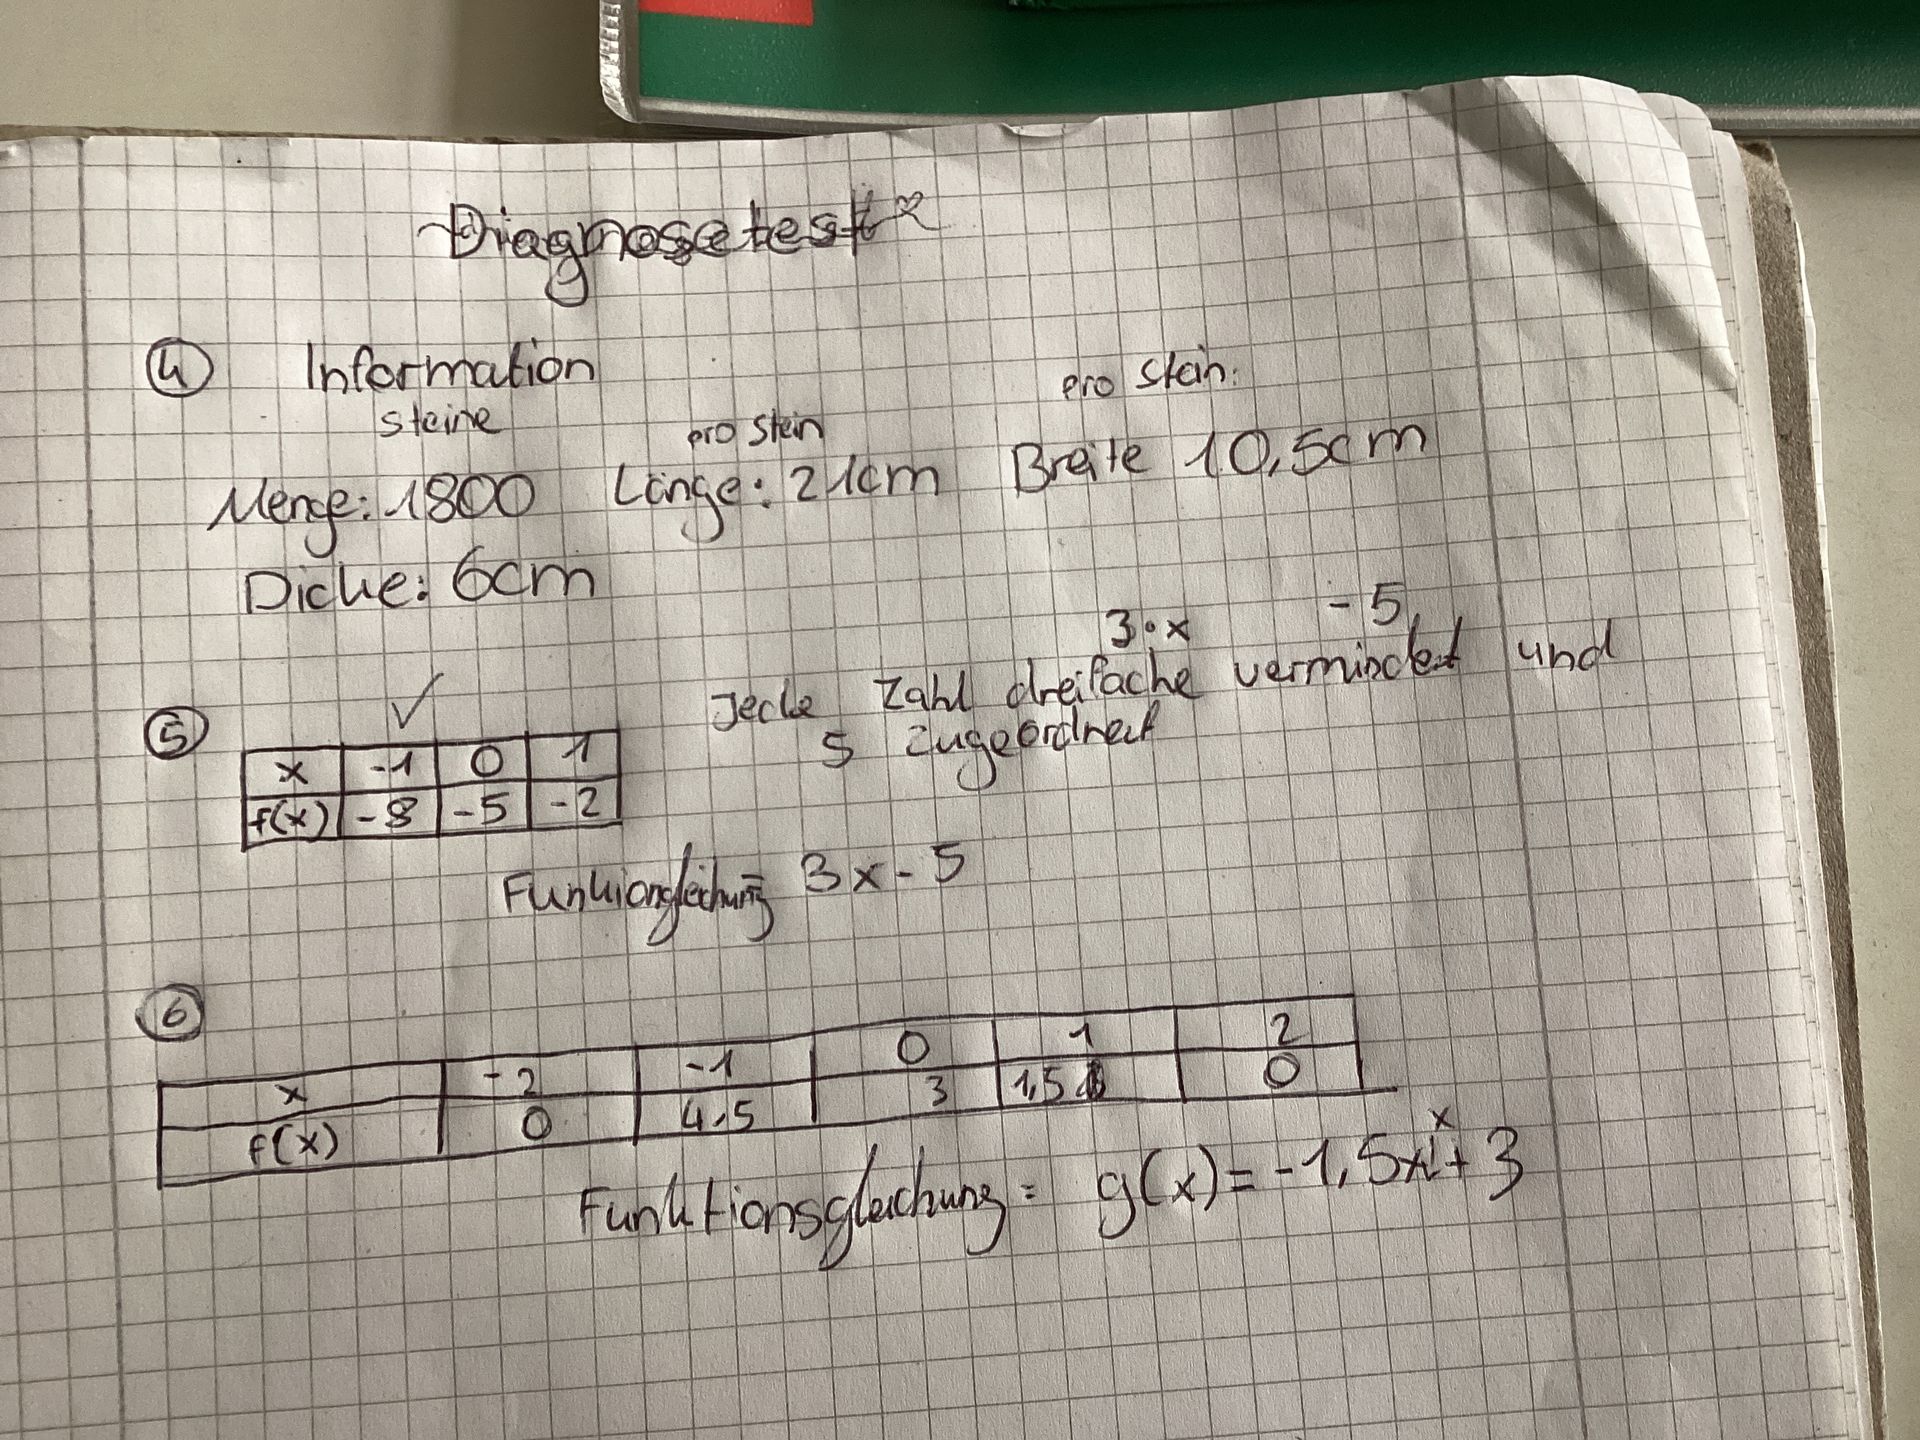 Diagnosetest
④ Information
steine pro Stein pro Stein:
Menge: 1800 Länge: 21cm Breite 10,5cm
Dicke: 6cm
3·x - 5
Jede Zahl dreifache vermindert und
5 zugeordnet
⑤ ✓
x -1 0 1
f(x) -8 -5 -2
Funkiongleichung = 3x - 5
⑥
x -2 -1 0 1 2
f(x) 0 4,5 3 1,5 0
x
Funktionsgleichung = g(x) = -1,5x + 3